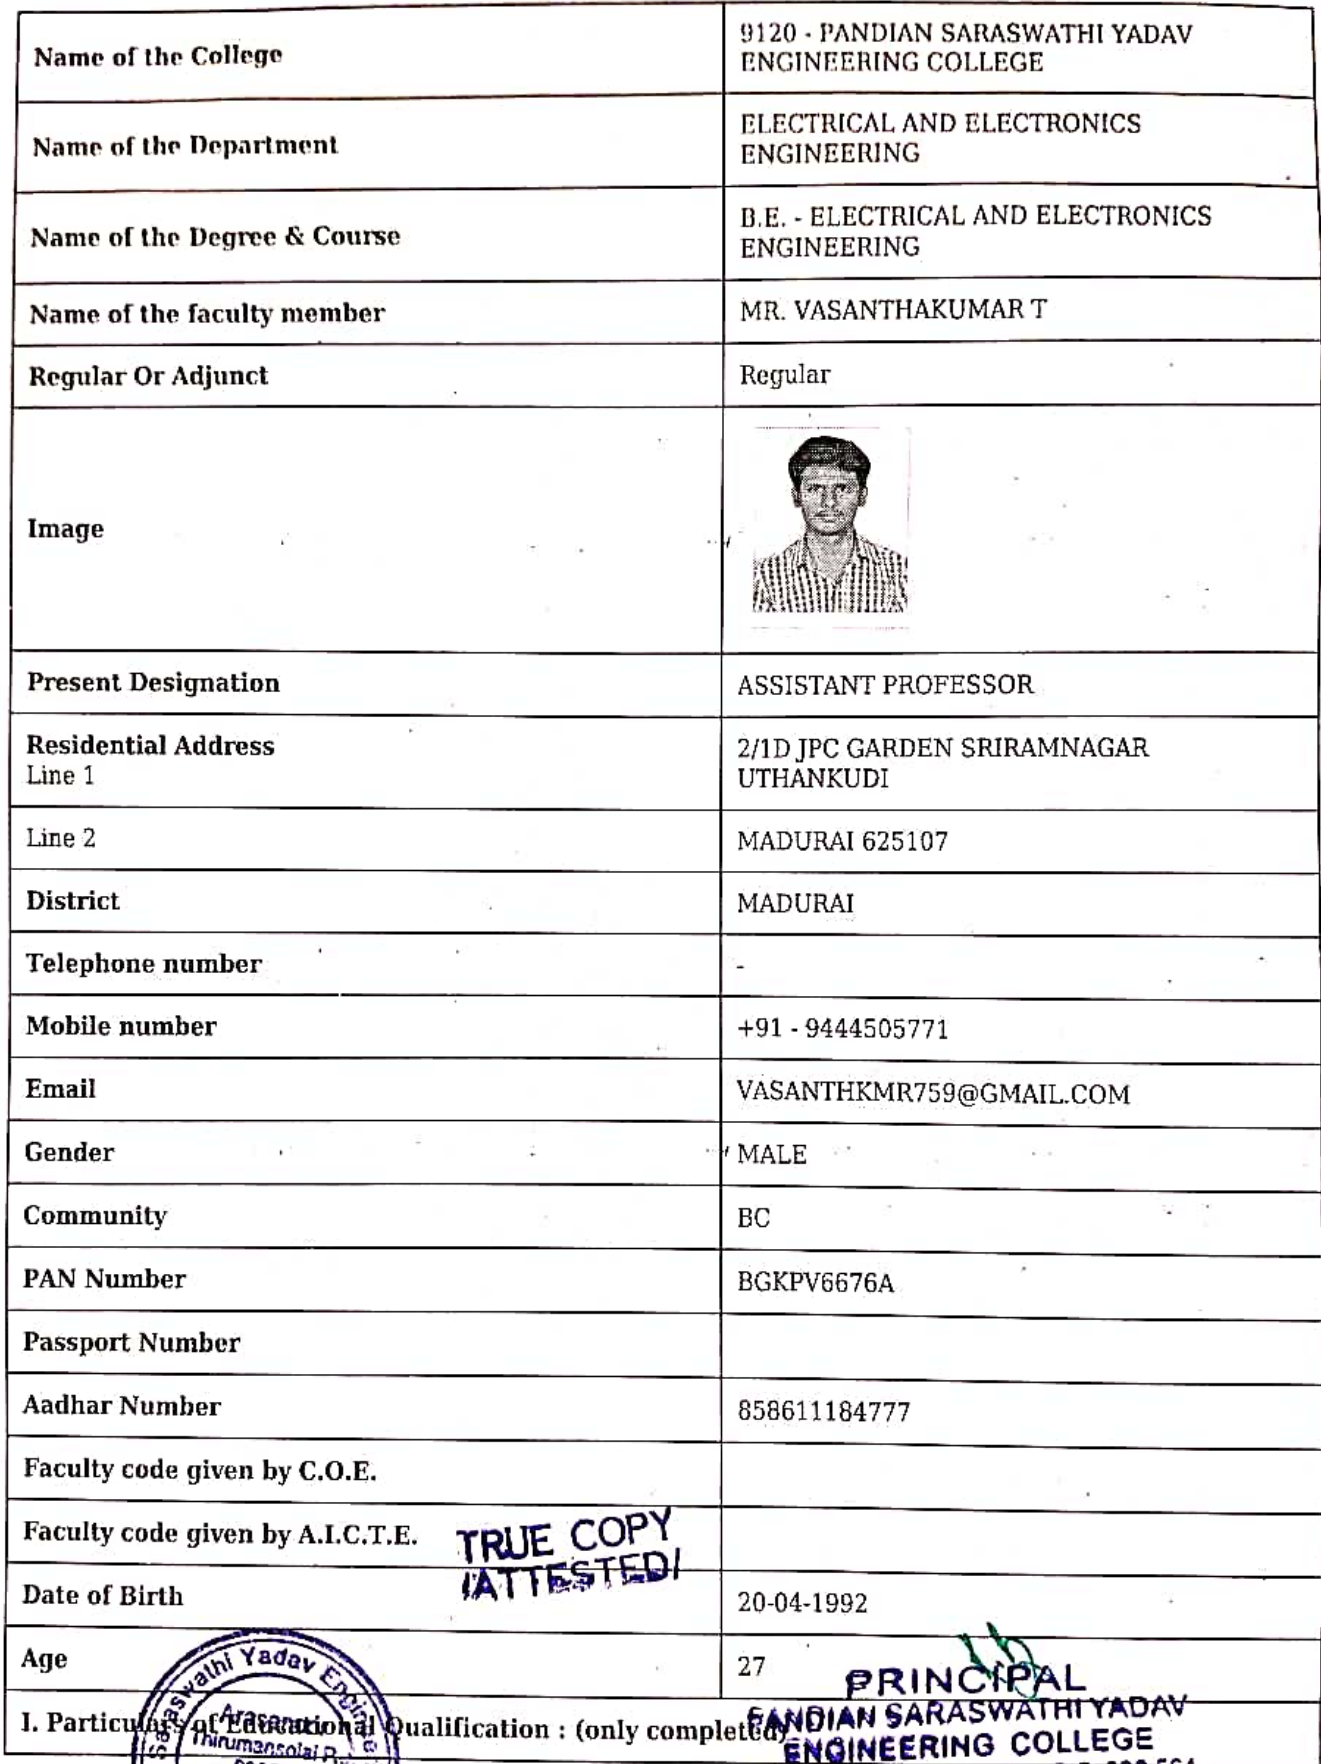 Name of the College
9120 - PANDIAN SARASWATHI YADAV
ENGINEERING COLLEGE
Name of the Department
ELECTRICAL AND ELECTRONICS
ENGINEERING
Name of the Degree & Course
B.E. - ELECTRICAL AND ELECTRONICS
ENGINEERING
Name of the faculty member
MR. VASANTHAKUMAR T
Regular Or Adjunct
Regular
Image
Present Designation
ASSISTANT PROFESSOR
Residential Address
Line 1
2/1D JPC GARDEN SRIRAMNAGAR
UTHANKUDI
Line 2
MADURAI 625107
District
MADURAI
Telephone number
-
Mobile number
+91 - 9444505771
Email
VASANTHKMR759@GMAIL.COM
Gender
MALE
Community
BC
PAN Number
BGKPV6676A
Passport Number
Aadhar Number
858611184777
Faculty code given by C.O.E.
Faculty code given by A.I.C.T.E.
TRUE COPY
/ATTESTED/
Date of Birth
20-04-1992
Age
27
PRINCIPAL
PANDIAN SARASWATHI YADAV
ENGINEERING COLLEGE
I. Particulars of Educational Qualification : (only completed)
Saraswathi Yadav